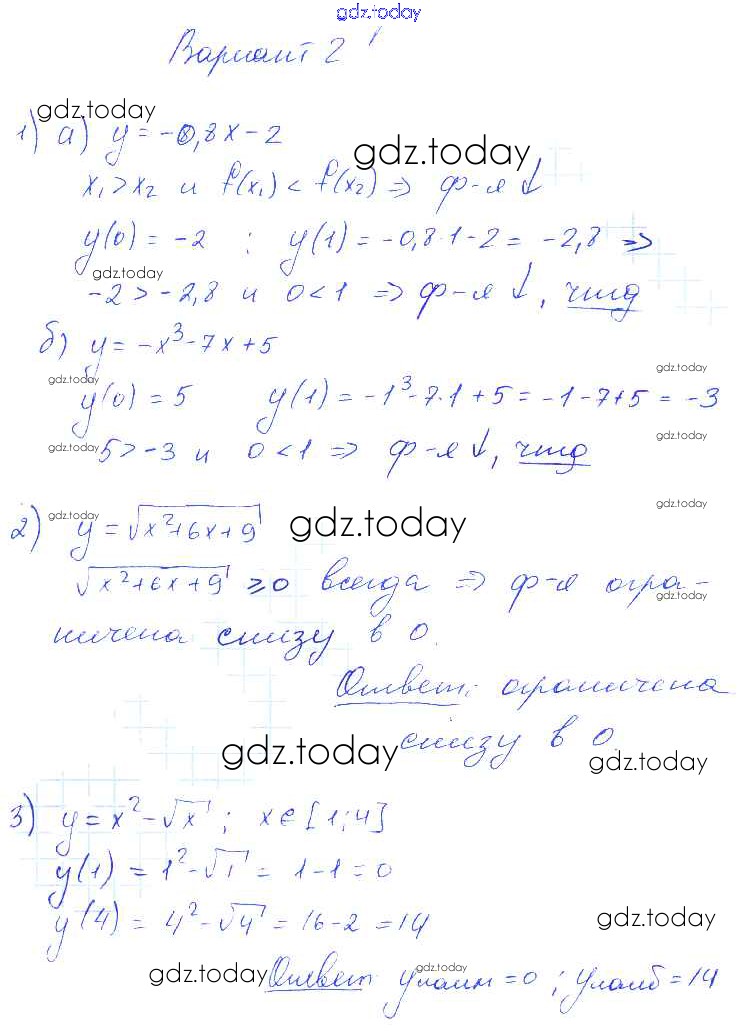 gdz.today
Вариант 2
gdz.today
1) а) y = -0,8x - 2
gdz.today
x₁ > x₂ и f(x₁) < f(x₂) ⇒ ф-я ↓
y(0) = -2 ; y(1) = -0,8·1-2 = -2,8 ⇒
gdz.today
-2 > -2,8 и 0 < 1 ⇒ ф-я ↓, чтд
б) y = -x³ - 7x + 5
gdz.today
gdz.today
y(0) = 5 y(1) = -1³ - 7·1 + 5 = -1 - 7 + 5 = -3
gdz.today
gdz.today
5 > -3 и 0 < 1 ⇒ ф-я ↓, чтд
gdz.today
gdz.today
2) y = √x²+6x+9 gdz.today
√x²+6x+9 ≥ 0 всегда ⇒ ф-я огра-
gdz.today
ничена снизу в 0.
Ответ: ограничена
gdz.today снизу в 0.
gdz.today
3) y = x² - √x ; x ∈ [1;4]
y(1) = 1² - √1 = 1 - 1 = 0
y(4) = 4² - √4 = 16 - 2 = 14
gdz.today
gdz.today Ответ: yнаим = 0 ; yнаиб = 14
gdz.today